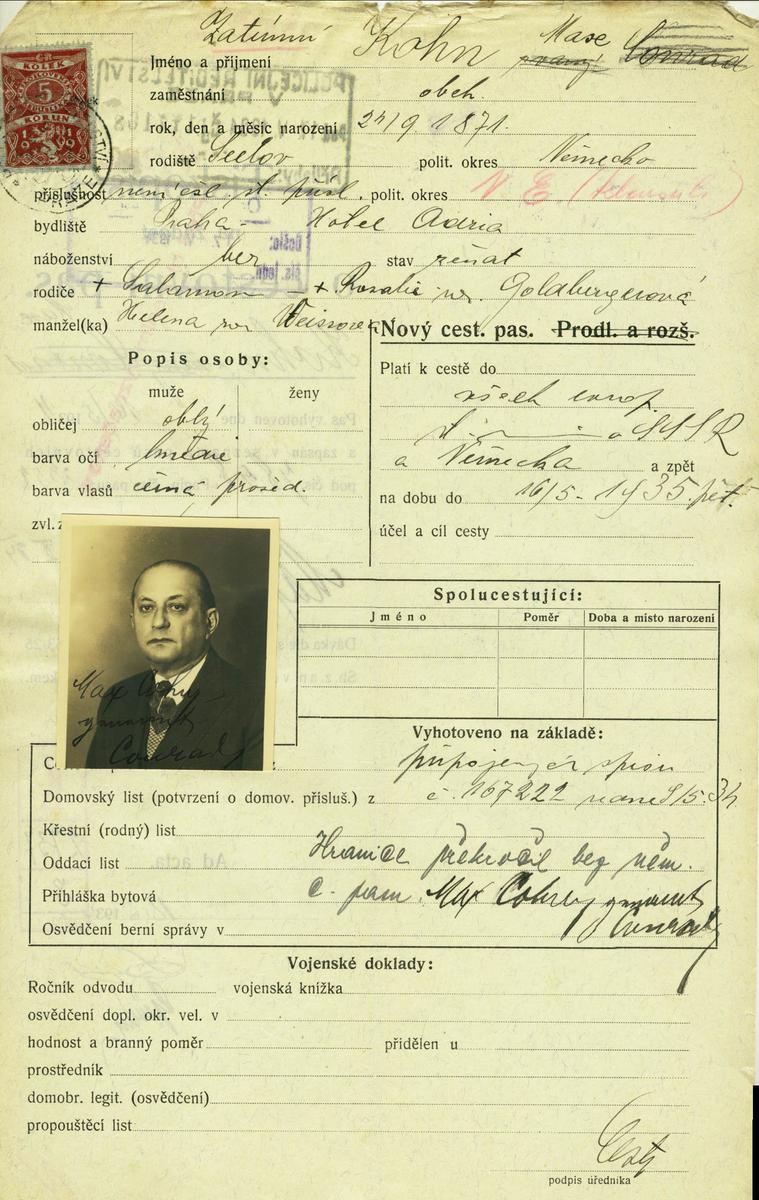 Zatímní
Jméno a příjmení Kohn Maxe Conrad
zaměstnání obch.
rok, den a měsíc narození 24/9 1871.
rodiště Seelov polit. okres Německo
příslušnost není čsl. st. přísl. polit. okres N. E.
bydliště Praha - Hotel Adria
náboženství bez stav ženat
rodiče + Salamon - + Rosalie roz. Goldbergerová
manžel(ka) Helena roz. Weissová
Nový cest. pas. Prodl. a rozš.
Popis osoby:
muže ženy
obličej oblý
barva očí hnědé
barva vlasů černá prošed.
zvl. z
Platí k cestě do
všech evrop.
a SSSR
a Německa a zpět
na dobu do 16/5 - 1935 pět.
účel a cíl cesty
Max Cohn
genannt
Conrad
Spolucestující:
Jméno Poměr Doba a místo narození
Vyhotoveno na základě:
připojených spisů
Domovský list (potvrzení o domov. přísluš.) z č. 167222 z dne 5/5. 34
Křestní (rodný) list
Oddací list Hranice překročil bez něm.
Přihláška bytová c. pasu. Max Cohn genannt
Osvědčení berní správy v Conrad
Vojenské doklady:
Ročník odvodu vojenská knížka
osvědčení dopl. okr. vel. v
hodnost a branný poměr přidělen u
prostředník
domobr. legit. (osvědčení)
propouštěcí list
podpis úředníka